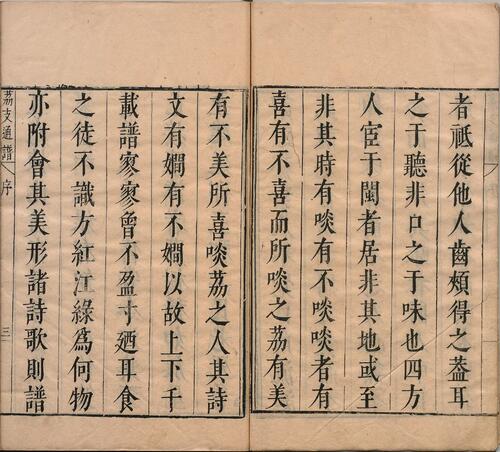 者祗從他人齒頰得之葢耳
之于聽非口之于味也四方
人宦于閩者居非其地或至
非其時有啖有不啖啖者有
喜有不喜而所啖之荔有美
有不美所喜啖荔之人其詩
文有嫺有不嫺以故上下千
載譜寥寥曾不盈寸廼耳食
之徒不識方紅江綠爲何物
亦附會其美形諸詩歌則譜
荔支通譜 序 三